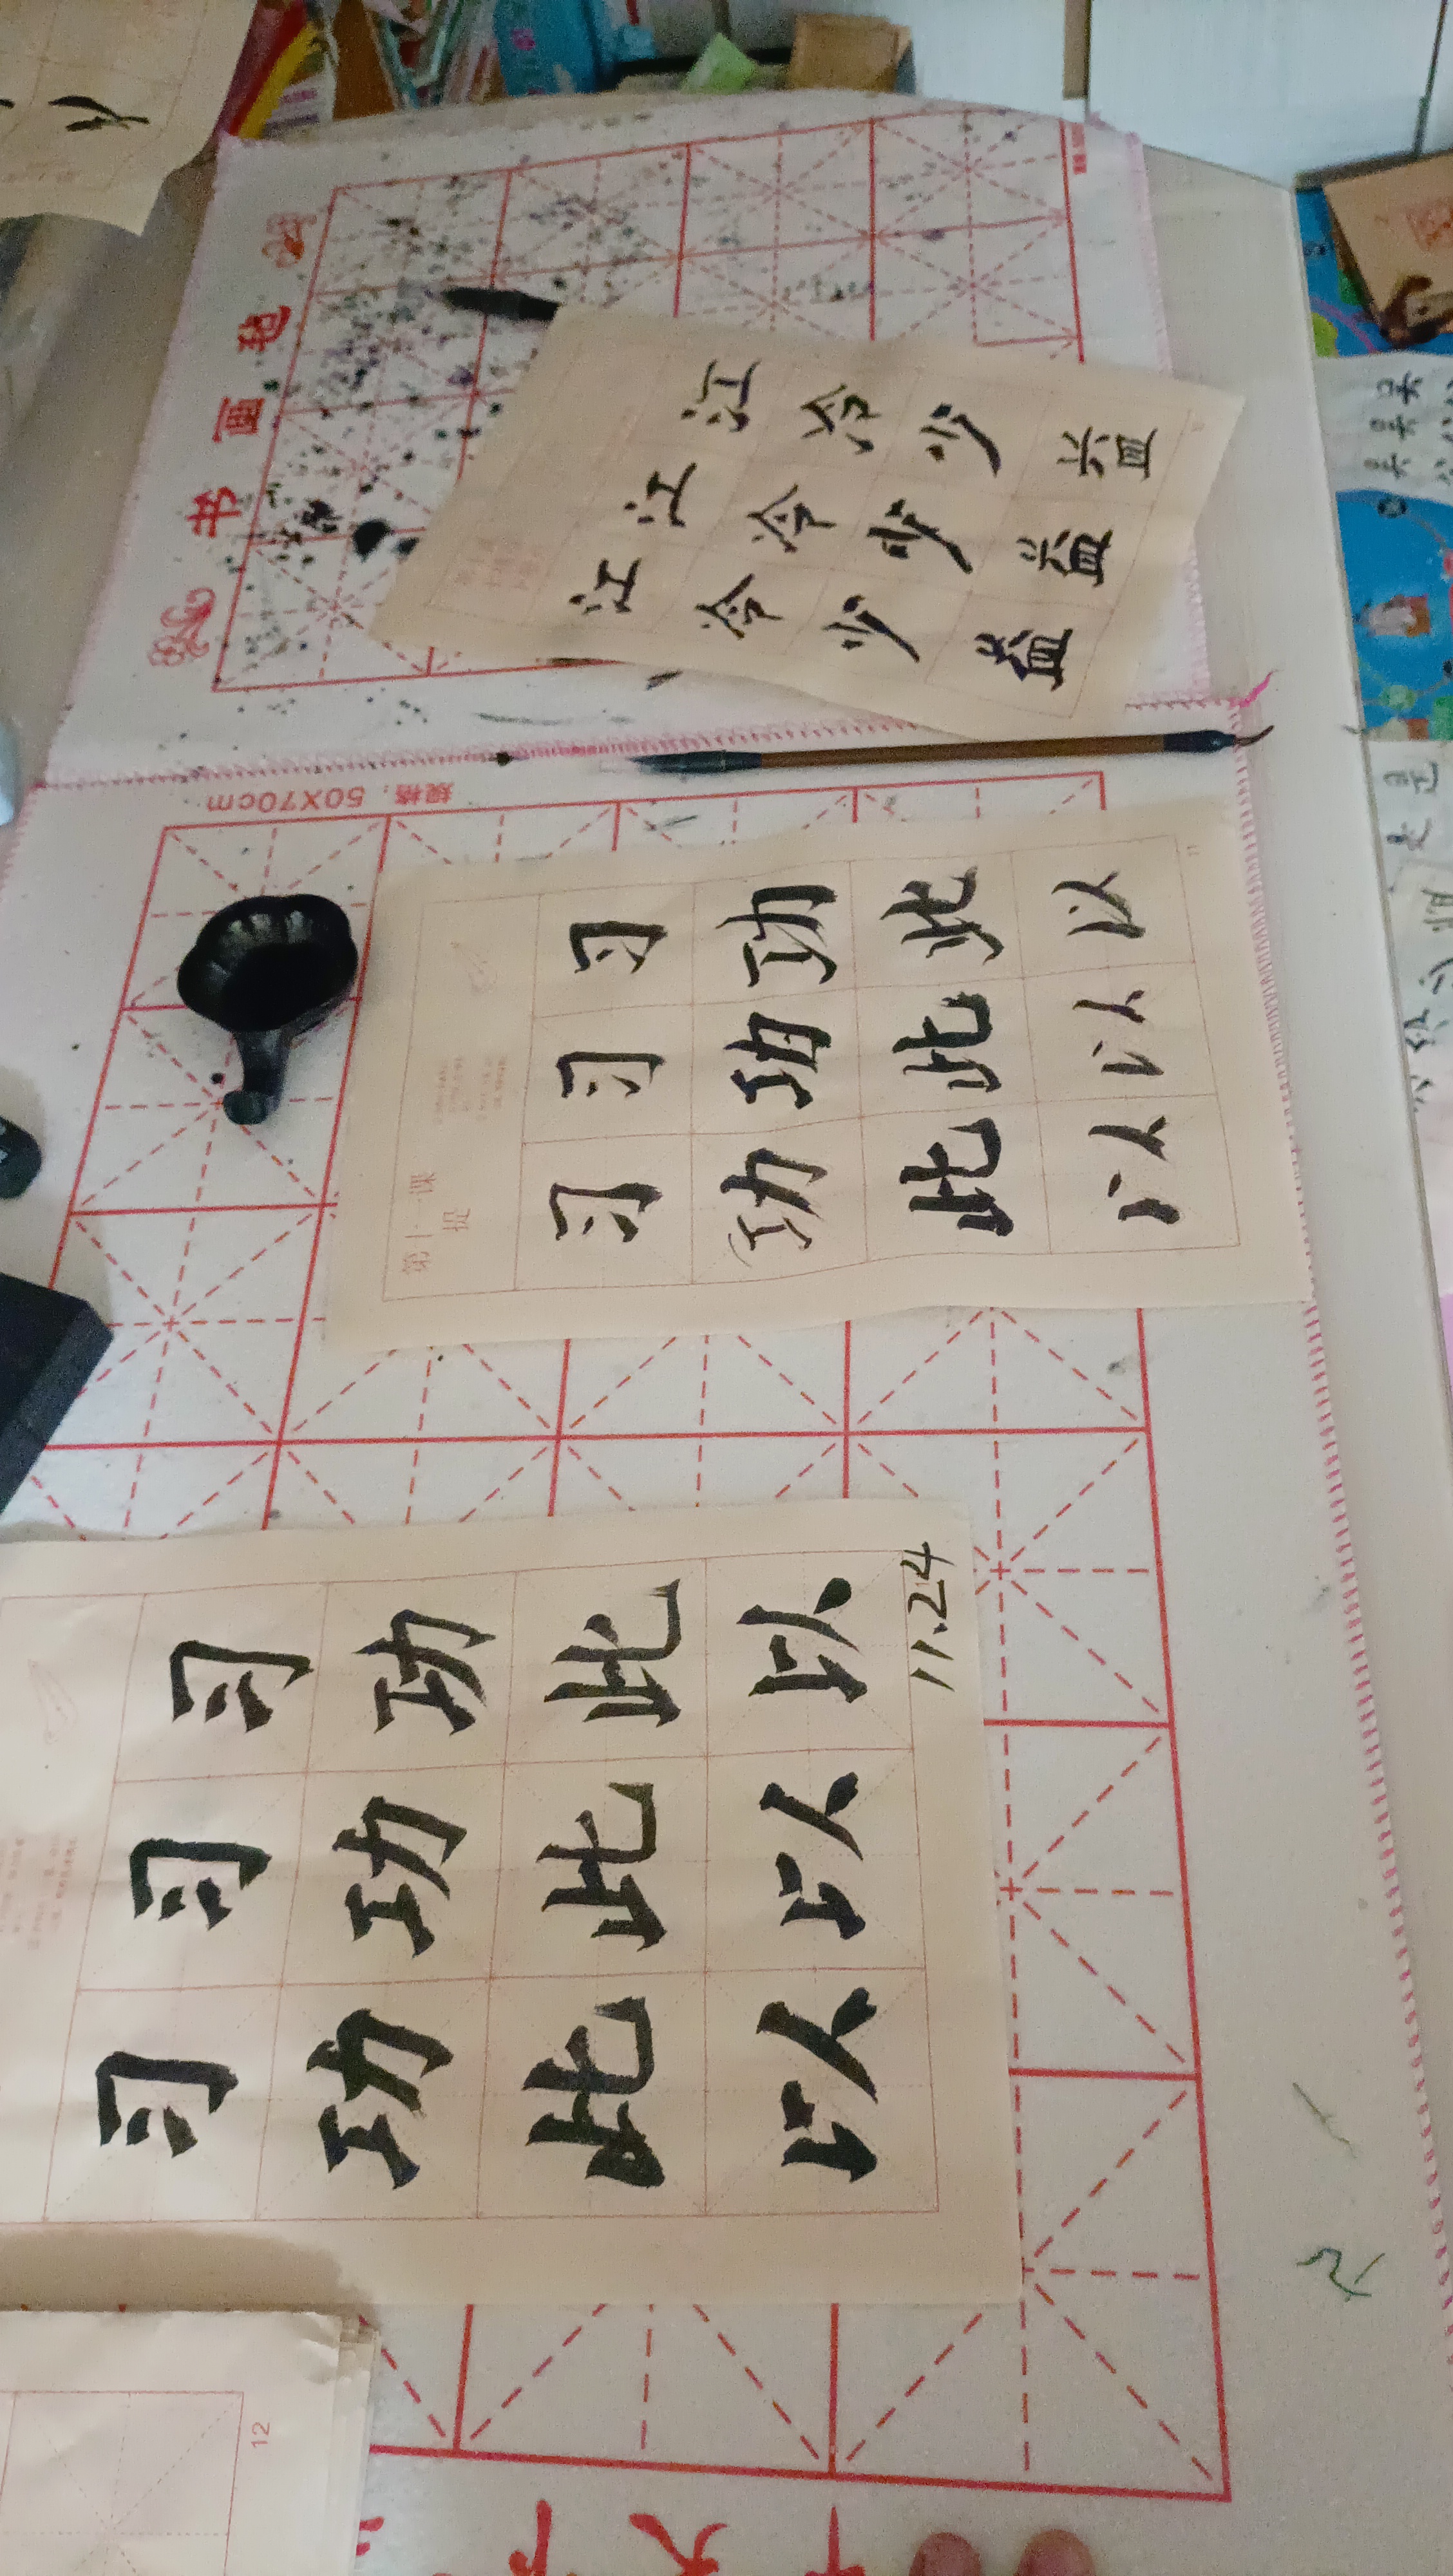 书画毡
江 江 江
冷 冷 冷
少 少 少
益 益 益
规格：50X70cm
第十一课
提
习 习 习
功 功 功
此 此 此
以 以 以
11
习 习 习
功 功 功
此 此 此
以 以 以
11.24
12